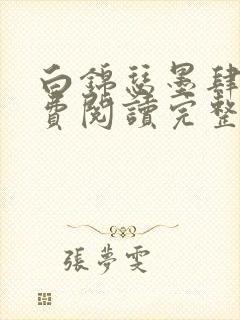 白錦瑟墨肆
費閱讀完整
張夢雯